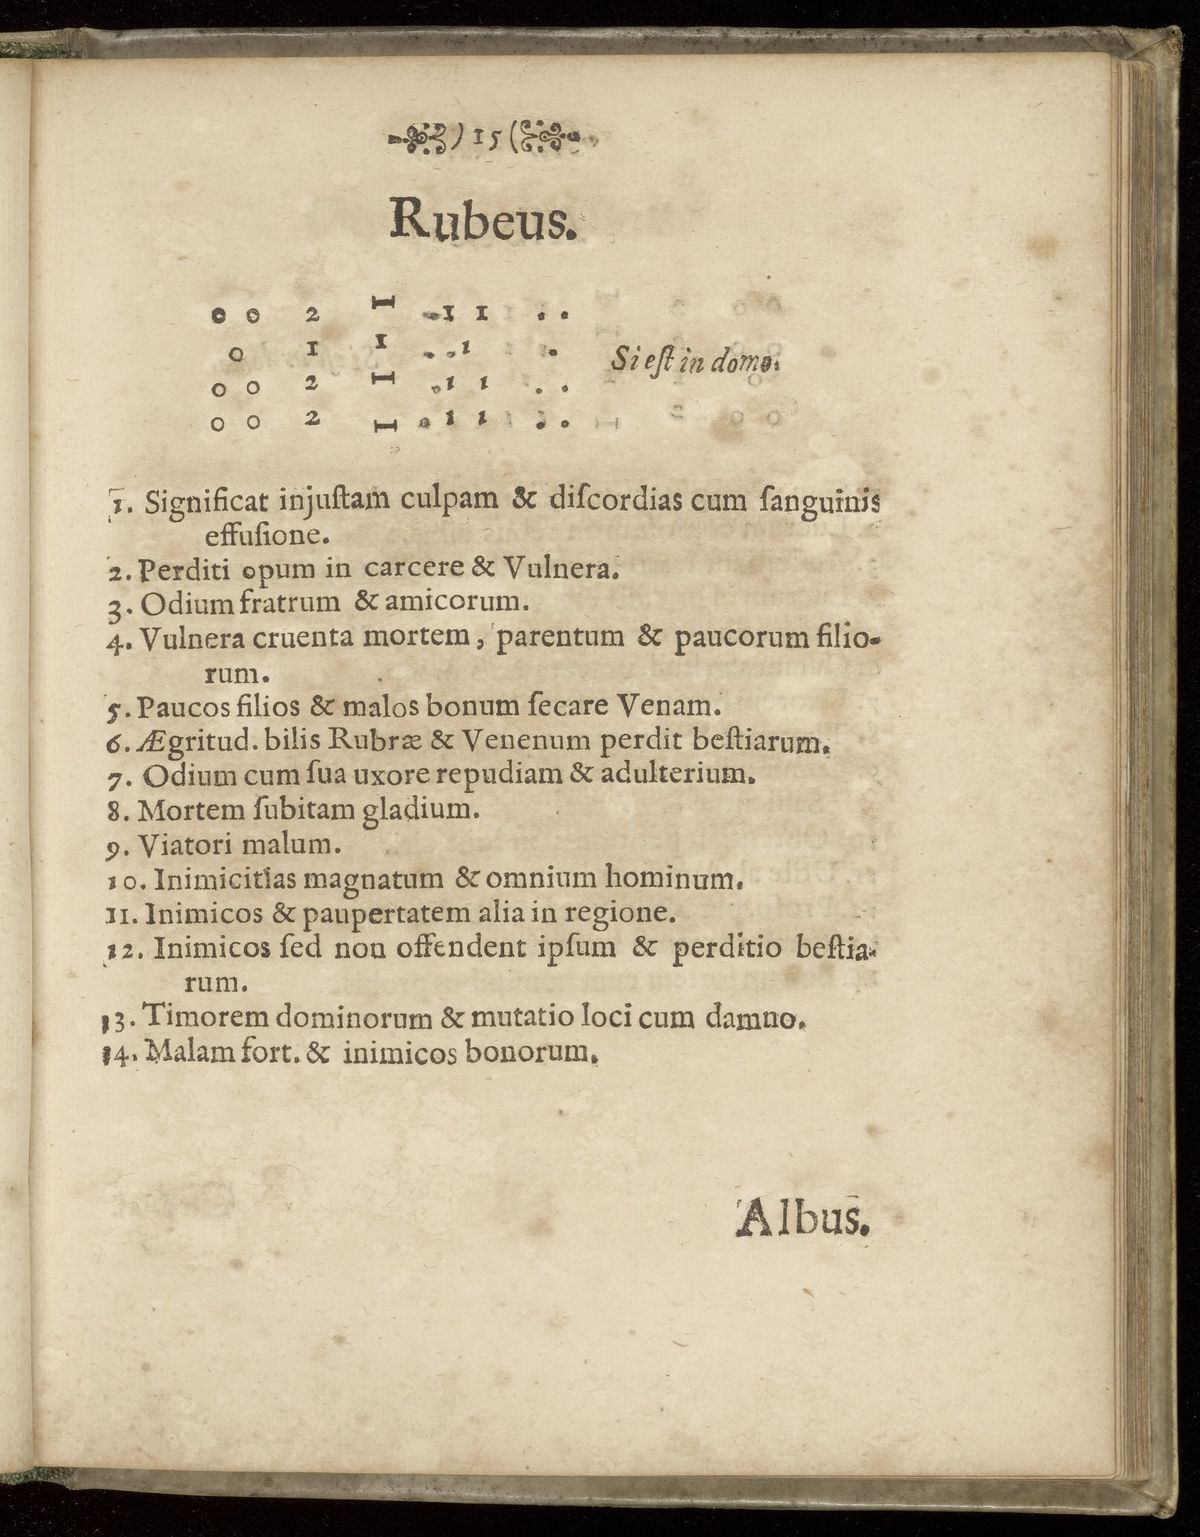 ) 15 (
Rubeus.
o o 2 I 1 1 . .
o 1 1 . . 1 .
o o 2 I . 1 1 . .
o o 2 I . 1 1 . .
Si eſt in domo.
1. Significat injuſtam culpam & diſcordias cum ſanguinis
effuſione.
2. Perditi opum in carcere & Vulnera.
3. Odium fratrum & amicorum.
4. Vulnera cruenta mortem, parentum & paucorum filio-
rum.
5. Paucos filios & malos bonum ſecare Venam.
6. Ægritud. bilis Rubræ & Venenum perdit beſtiarum.
7. Odium cum ſua uxore repudiam & adulterium.
8. Mortem ſubitam gladium.
9. Viatori malum.
10. Inimicitias magnatum & omnium hominum.
11. Inimicos & paupertatem alia in regione.
12. Inimicos ſed non offendent ipſum & perditio beſtia-
rum.
13. Timorem dominorum & mutatio loci cum damno.
14. Malam fort. & inimicos bonorum.
Albus.